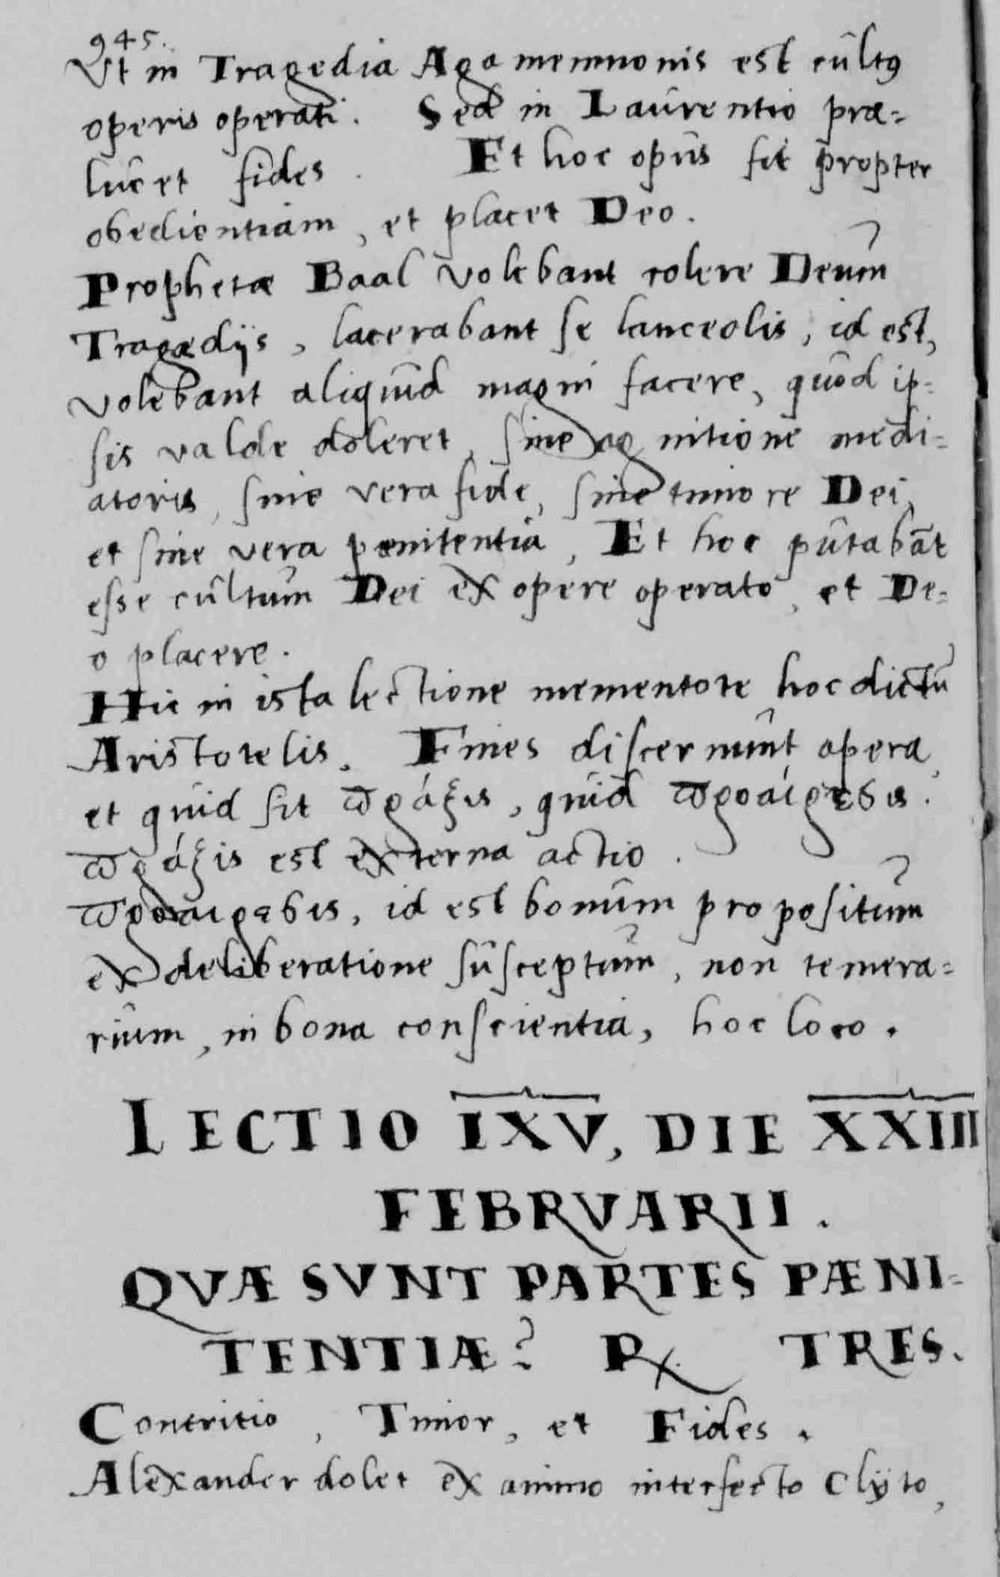 945.
Vt in Tragedia Agamemnonis est cûltꝰ
operis operati. Sed in Laûrentio præ-
lûcet fides. Et hoc opûs fit propter
obedientiam, et placet Deo.
Prophetæ Baal volebant colere Deûm
Tragædijs, lacerabant se lanceolis, id est,
volebant aliqûid magni facere, qûod ip-
sis valde doleret, sine agnitione medi-
atoris, sine vera fide, sine timore Dei,
et sine vera pœnitentia, Et hoc pûtabāt
esse cûltûm Dei ex opere operato, et De-
o placere.
Hic in ista lectione mementote hoc dictū
Aristotelis. Fines discernûnt opera,
et qûid sit ϖράξις, qûid ϖροαίρεσις.
ϖράξις est externa actio.
ϖροαιρεσις, id est bonûm propositûm
ex deliberatione sûsceptûm, non temera-
riûm, in bona conscientia, hoc loco.
LECTIO IXV, DIE XXIII
FEBRVARII.
QVÆ SVNT PARTES PÆNI-
TENTIÆ? ℞. TRES.
Contritio, Timor, et Fides.
Alexander dolet ex animo interfecto Clÿto,